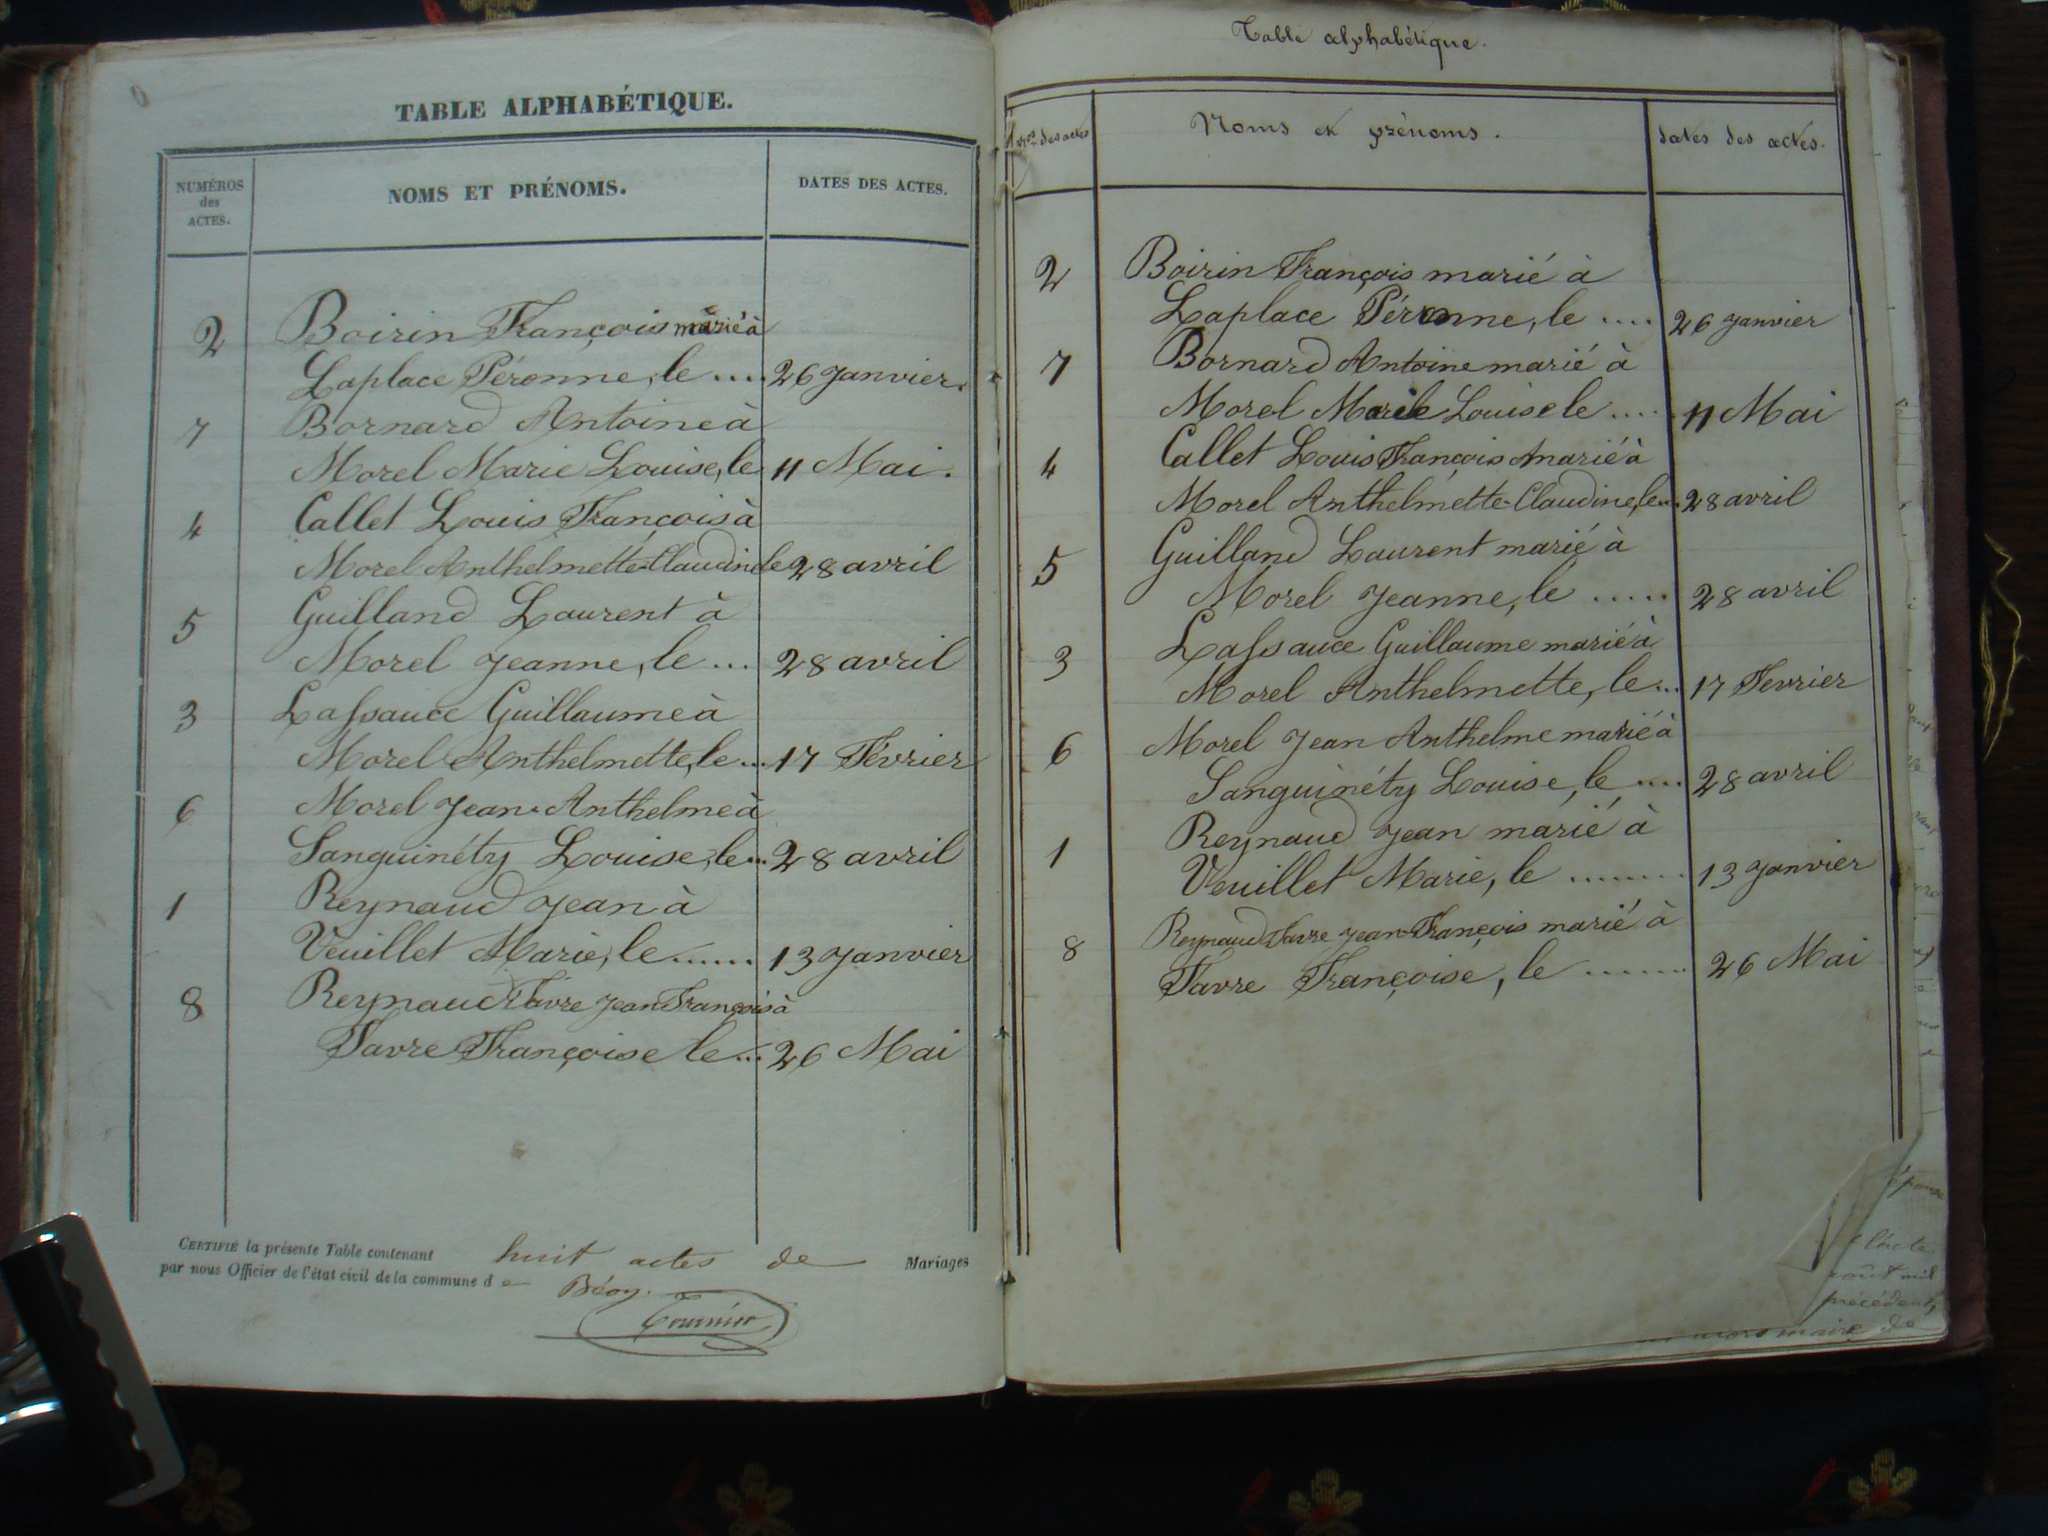 TABLE ALPHABÉTIQUE.
NUMÉROS
des
ACTES.
NOMS ET PRÉNOMS.
DATES DES ACTES.
2 Boirin François marié à
Laplace Péronne, le .... 26 Janvier.
7 Bornard Antoine à
Morel Marie Louise, le 11 Mai.
4 Callet Louis François à
Morel Anthelmette-Claudine le 28 avril
5 Guilland Laurent à
Morel Jeanne, le ... 28 avril
3 Lassauce Guillaume à
Morel Anthelmette, le ... 17 Février
6 Morel Jean-Anthelme à
Sanguinéty Louise, le ... 28 avril
1 Reynaud Jean à
Veuillet Marie, le ...... 13 Janvier
8 Reynaud Favre Jean François à
Favre Françoise le ... 26 Mai
CERTIFIÉ la présente Table contenant huit actes de Mariages
par nous Officier de l'état civil de la commune de Béon.
Table alphabétique.
Nos des actes
Noms et prénoms.
dates des actes.
2 Boirin François marié à
Laplace Péronne, le .... 26 Janvier
7 Bornard Antoine marié à
Morel Marie Louise le ..... 11 Mai
4 Callet Louis François marié à
Morel Anthelmette-Claudine, le... 28 avril
5 Guilland Laurent marié à
Morel Jeanne, le ..... 28 avril
3 Lassauce Guillaume marié à
Morel Anthelmette, le... 17 Fevrier
6 Morel Jean Anthelme marié à
Sanguinéty Louise, le .... 28 avril
1 Reynaud Jean marié à
Veuillet Marie, le ........ 13 Janvier
8 Reynaud Favre Jean-François marié à
Favre Françoise, le ....... 26 Mai